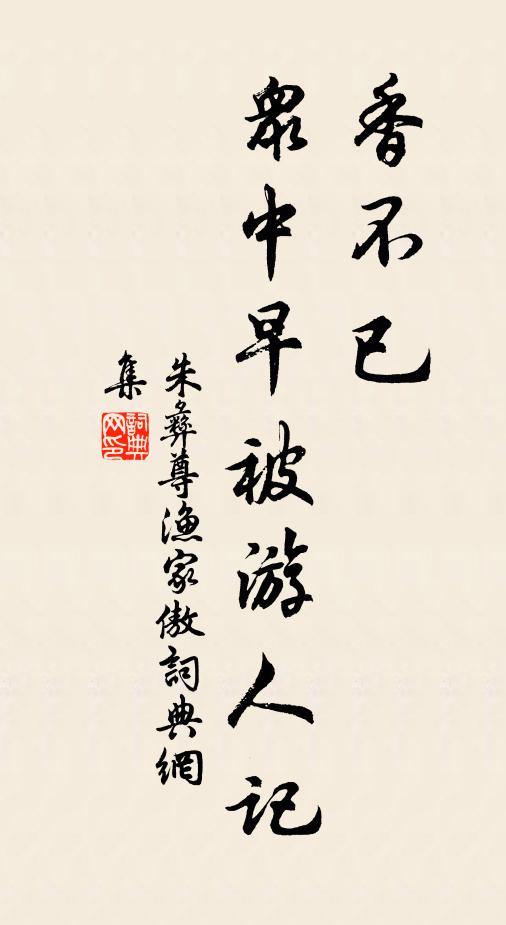 香不已
眾中早被游人记
朱彝尊渔家傲詞典網
集
詞典
网印